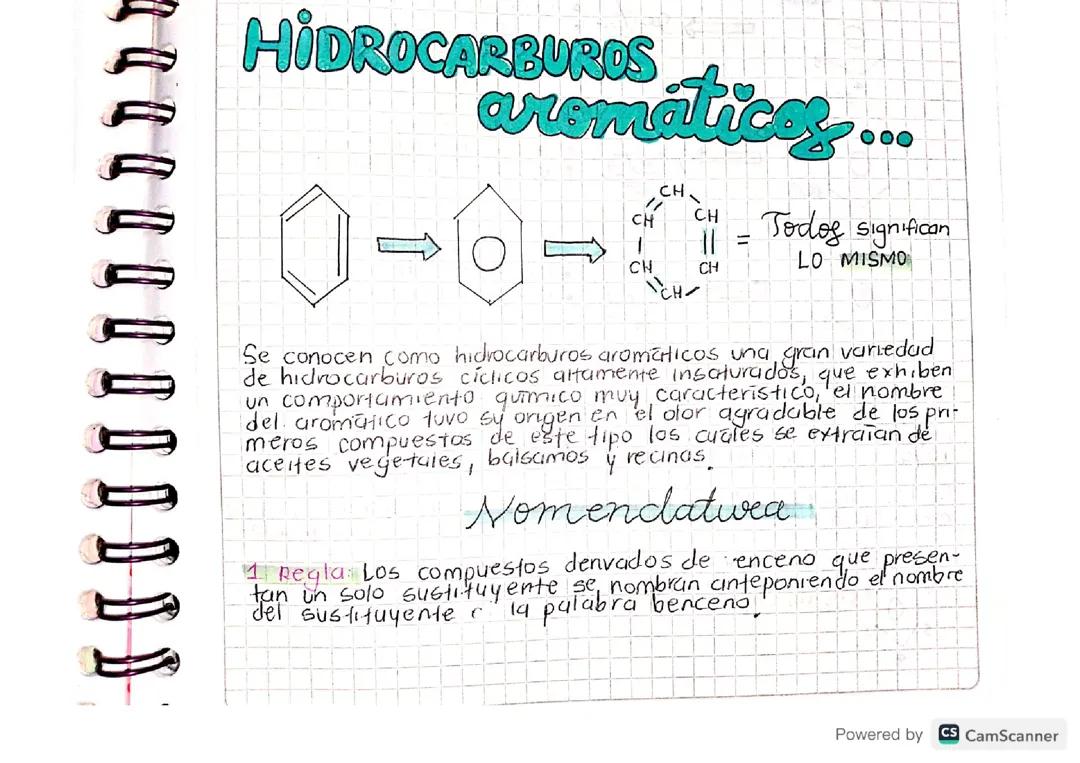 HiDROCARBUROS
aromáticos...
CH
CH CH
CH CH
CH
= Todos significan
LO MISMO
Se conocen como hidrocarburos aromáticos una gran variedad
de hidrocarburos cíclicos altamente insaturados, que exhiben
un comportamiento químico muy característico, el nombre
del aromático tuvo su origen en el olor agradable de los pri-
meros compuestos de este tipo los cuáles se extraían de
aceites vegetales, bálsamos y recinas.
Nomenclatura
1 Regla: Los compuestos derivados de enceno que presen-
tan un solo sustituyente se nombran anteponiendo el nombre
del sustituyente la palabra benceno.
Powered by CS CamScanner